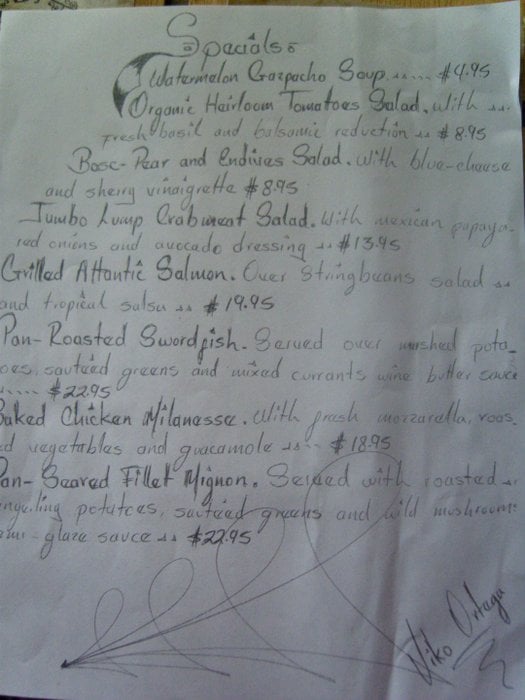 Specials
Watermelon Gazpacho Soup..... $4.95
Organic Heirloom Tomatoes Salad. With ...
fresh basil and balsamic reduction .. $8.95
Bosc-Pear and Endives Salad. With blue-cheese
and sherry vinaigrette $8.95
Jumbo Lump Crabmeat Salad. With mexican papaya-
red onions and avocado dressing ... $13.95
Grilled Atlantic Salmon. Over Stringbeans salad ..
and tropical salsa .. $19.95
Pan-Roasted Swordfish. Served over mashed pota_
oes, sauteéd greens and mixed currants wine butter sauce
..... $22.95
Baked Chicken Milanesse. With fresh mozzarella, roas_
ed vegetables and guacamole ..... $18.95
Pan-Seared Fillet Mignon. Served with roasted ..
ngerling potatoes, sauteéd greens and wild mushrooms
emi-glaze sauce .. $22.95
Niko Ortega